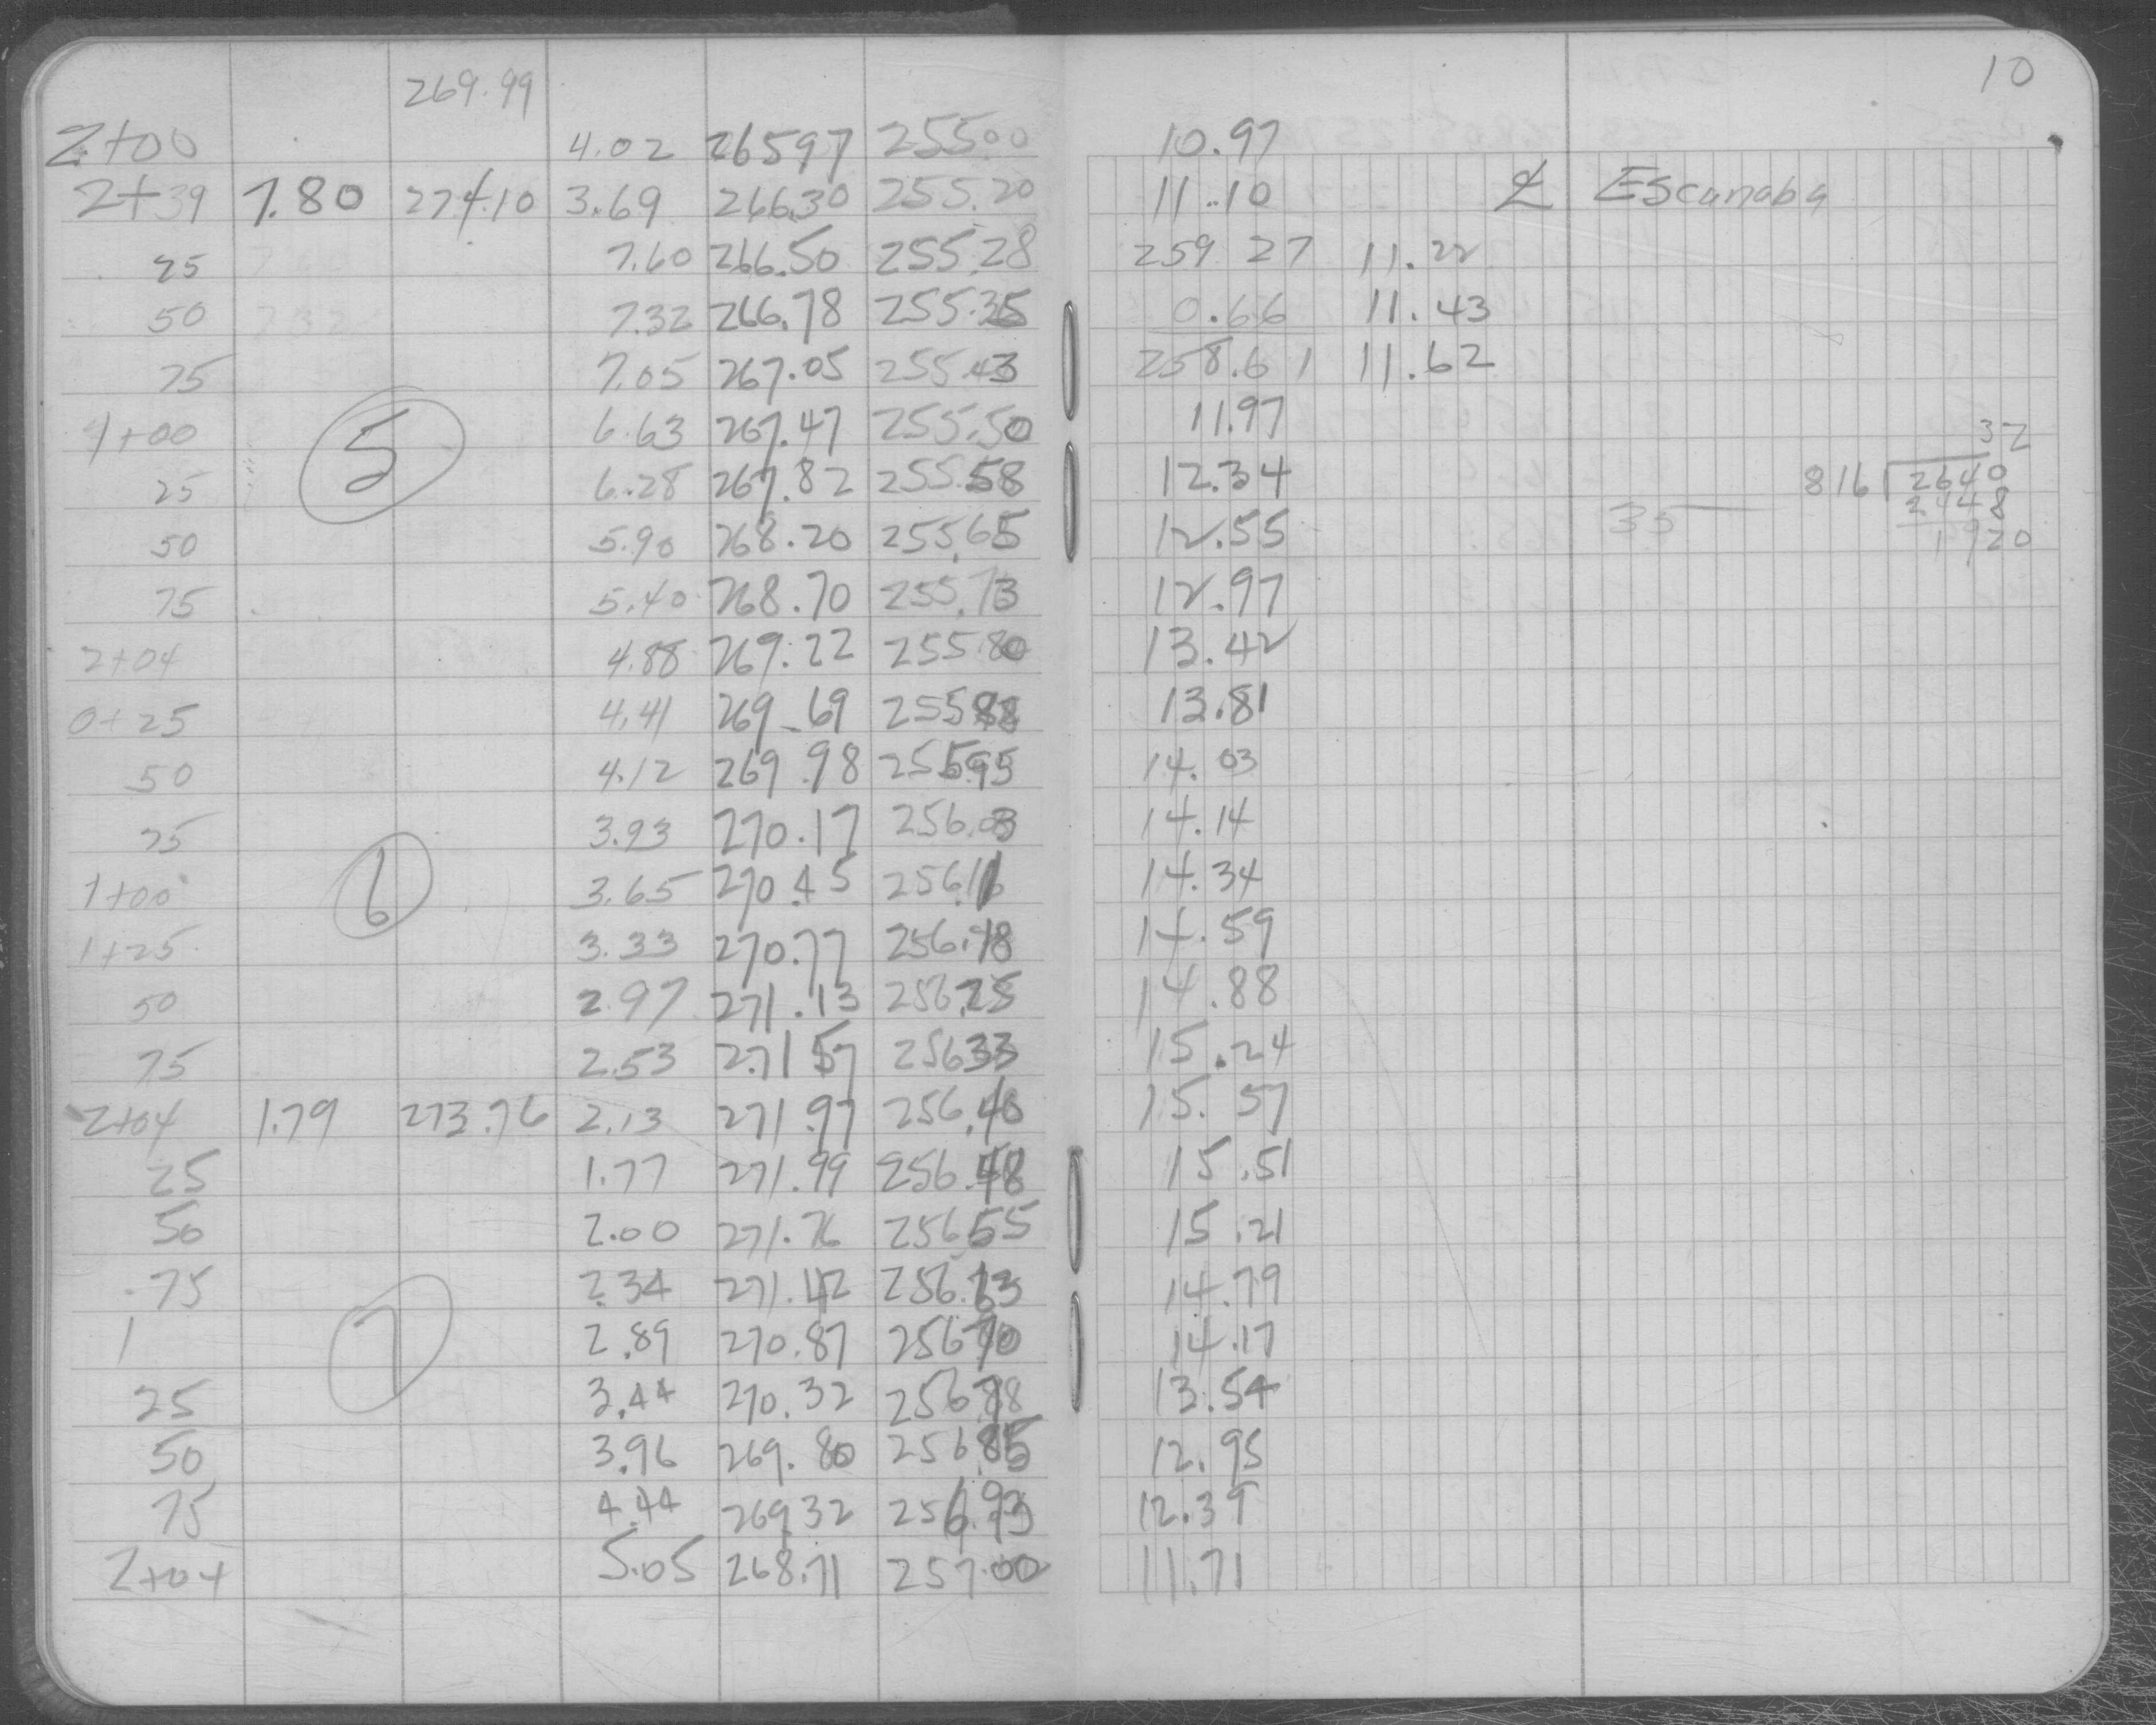 10
269.99
2+00 4.02 265 97 255 00 10.97
2+39 7.80 274.10 3.69 266.30 255.20 11.10 ℄ Escanaba
25 7.60 266.50 255.28 259 27 11.22
50 7.32 266.78 255.35 0.66 11.43
75 7.05 267.05 255.43 258.61 11.62
1+00 6.63 267.47 255.50 11.97
32
25 6.28 267.82 255.58 12.34 816 2640
2448
50 5.90 268.20 255.65 12.55 35 1920
5
75 5.40 268.70 255.73 12.97
2+04 4.88 269.22 255 80 13.42
0+25 4.41 269.69 255 88 13.81
50 4.12 269.98 255.95 14.03
75 3.93 270.17 256.03 14.14
1+00 3.65 270.45 256.11 14.34
6
1+25 3.33 270.77 256.18 14.59
50 2.97 271.13 256.25 14.88
75 2.53 271 57 256 33 15.24
2+04 1.79 273.76 2.13 271.97 256.40 15.57
25 1.77 271.99 256.48 15.51
50 2.00 271.76 256.55 15.21
75 2.34 271.42 256.63 14.79
1 2.89 270.87 256 70 14.17
7
25 3.44 270.32 256 78 13.54
50 3.96 269.80 256.85 12.95
75 4.44 269.32 256.93 12.39
2+04 5.05 268.71 257.00 11.71